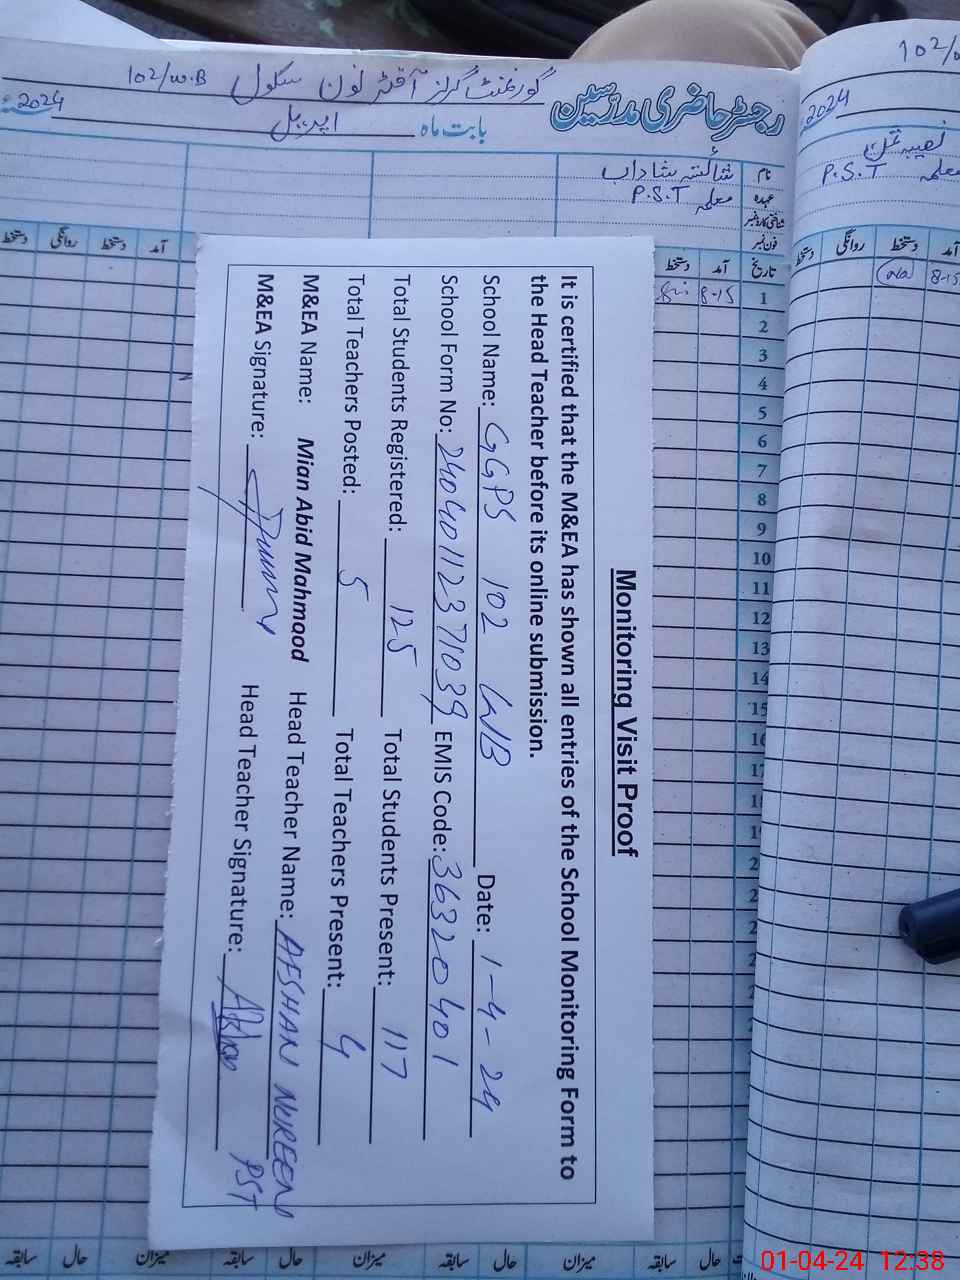 رجسٹر حاضری مدرسین گورنمنٹ گرلز آفٹر نون سکول 102/W.B
بابت ماہ اپریل 2024ء
نام شائستہ شاداب
عہدہ معلمہ P.S.T
شناختی کارڈ نمبر
فون نمبر
تاریخ آمد دستخط
آمد دستخط روانگی دستخط
1 8-15
2
3
4
5
6
7
8
9
10
11
12
13
14
15
16
17
18
19
102/W
2024
معلمہ P.S.T
آمد دستخط روانگی دستخط
8-15
Monitoring Visit Proof
It is certified that the M&EA has shown all entries of the School Monitoring Form to
the Head Teacher before its online submission.
School Name: GGPS 102 WB Date: 1-4-24
School Form No: 24040112371039 EMIS Code: 36320401
Total Students Registered: 125 Total Students Present: 117
Total Teachers Posted: 5 Total Teachers Present: 4
M&EA Name: Mian Abid Mahmood Head Teacher Name: AFSHAN NUREEN
M&EA Signature: Head Teacher Signature: PST
سابقہ حال میزان سابقہ حال میزان سابقہ حال میزان سابقہ حال
01-04-24 12:38